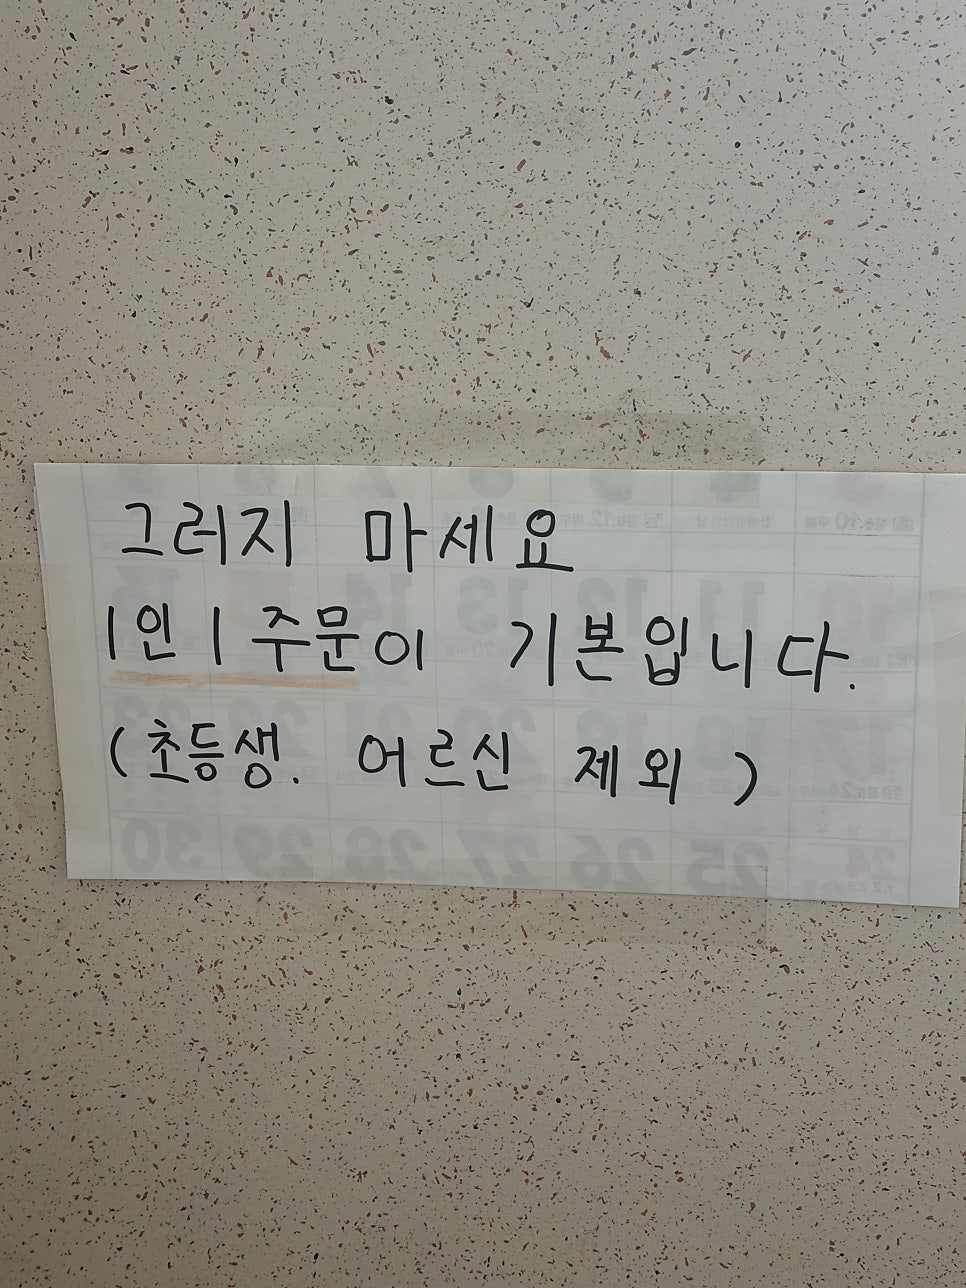 그러지 마세요
1인 1 주문이 기본입니다.
(초등생. 어르신 제외)